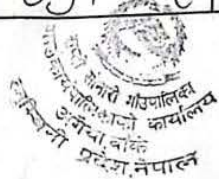 राप्ती सोनारी गाउँपालिका
गाउँ कार्यपालिकाको कार्यालय
अगैया, बाँके
लुम्बिनी प्रदेश, नेपाल